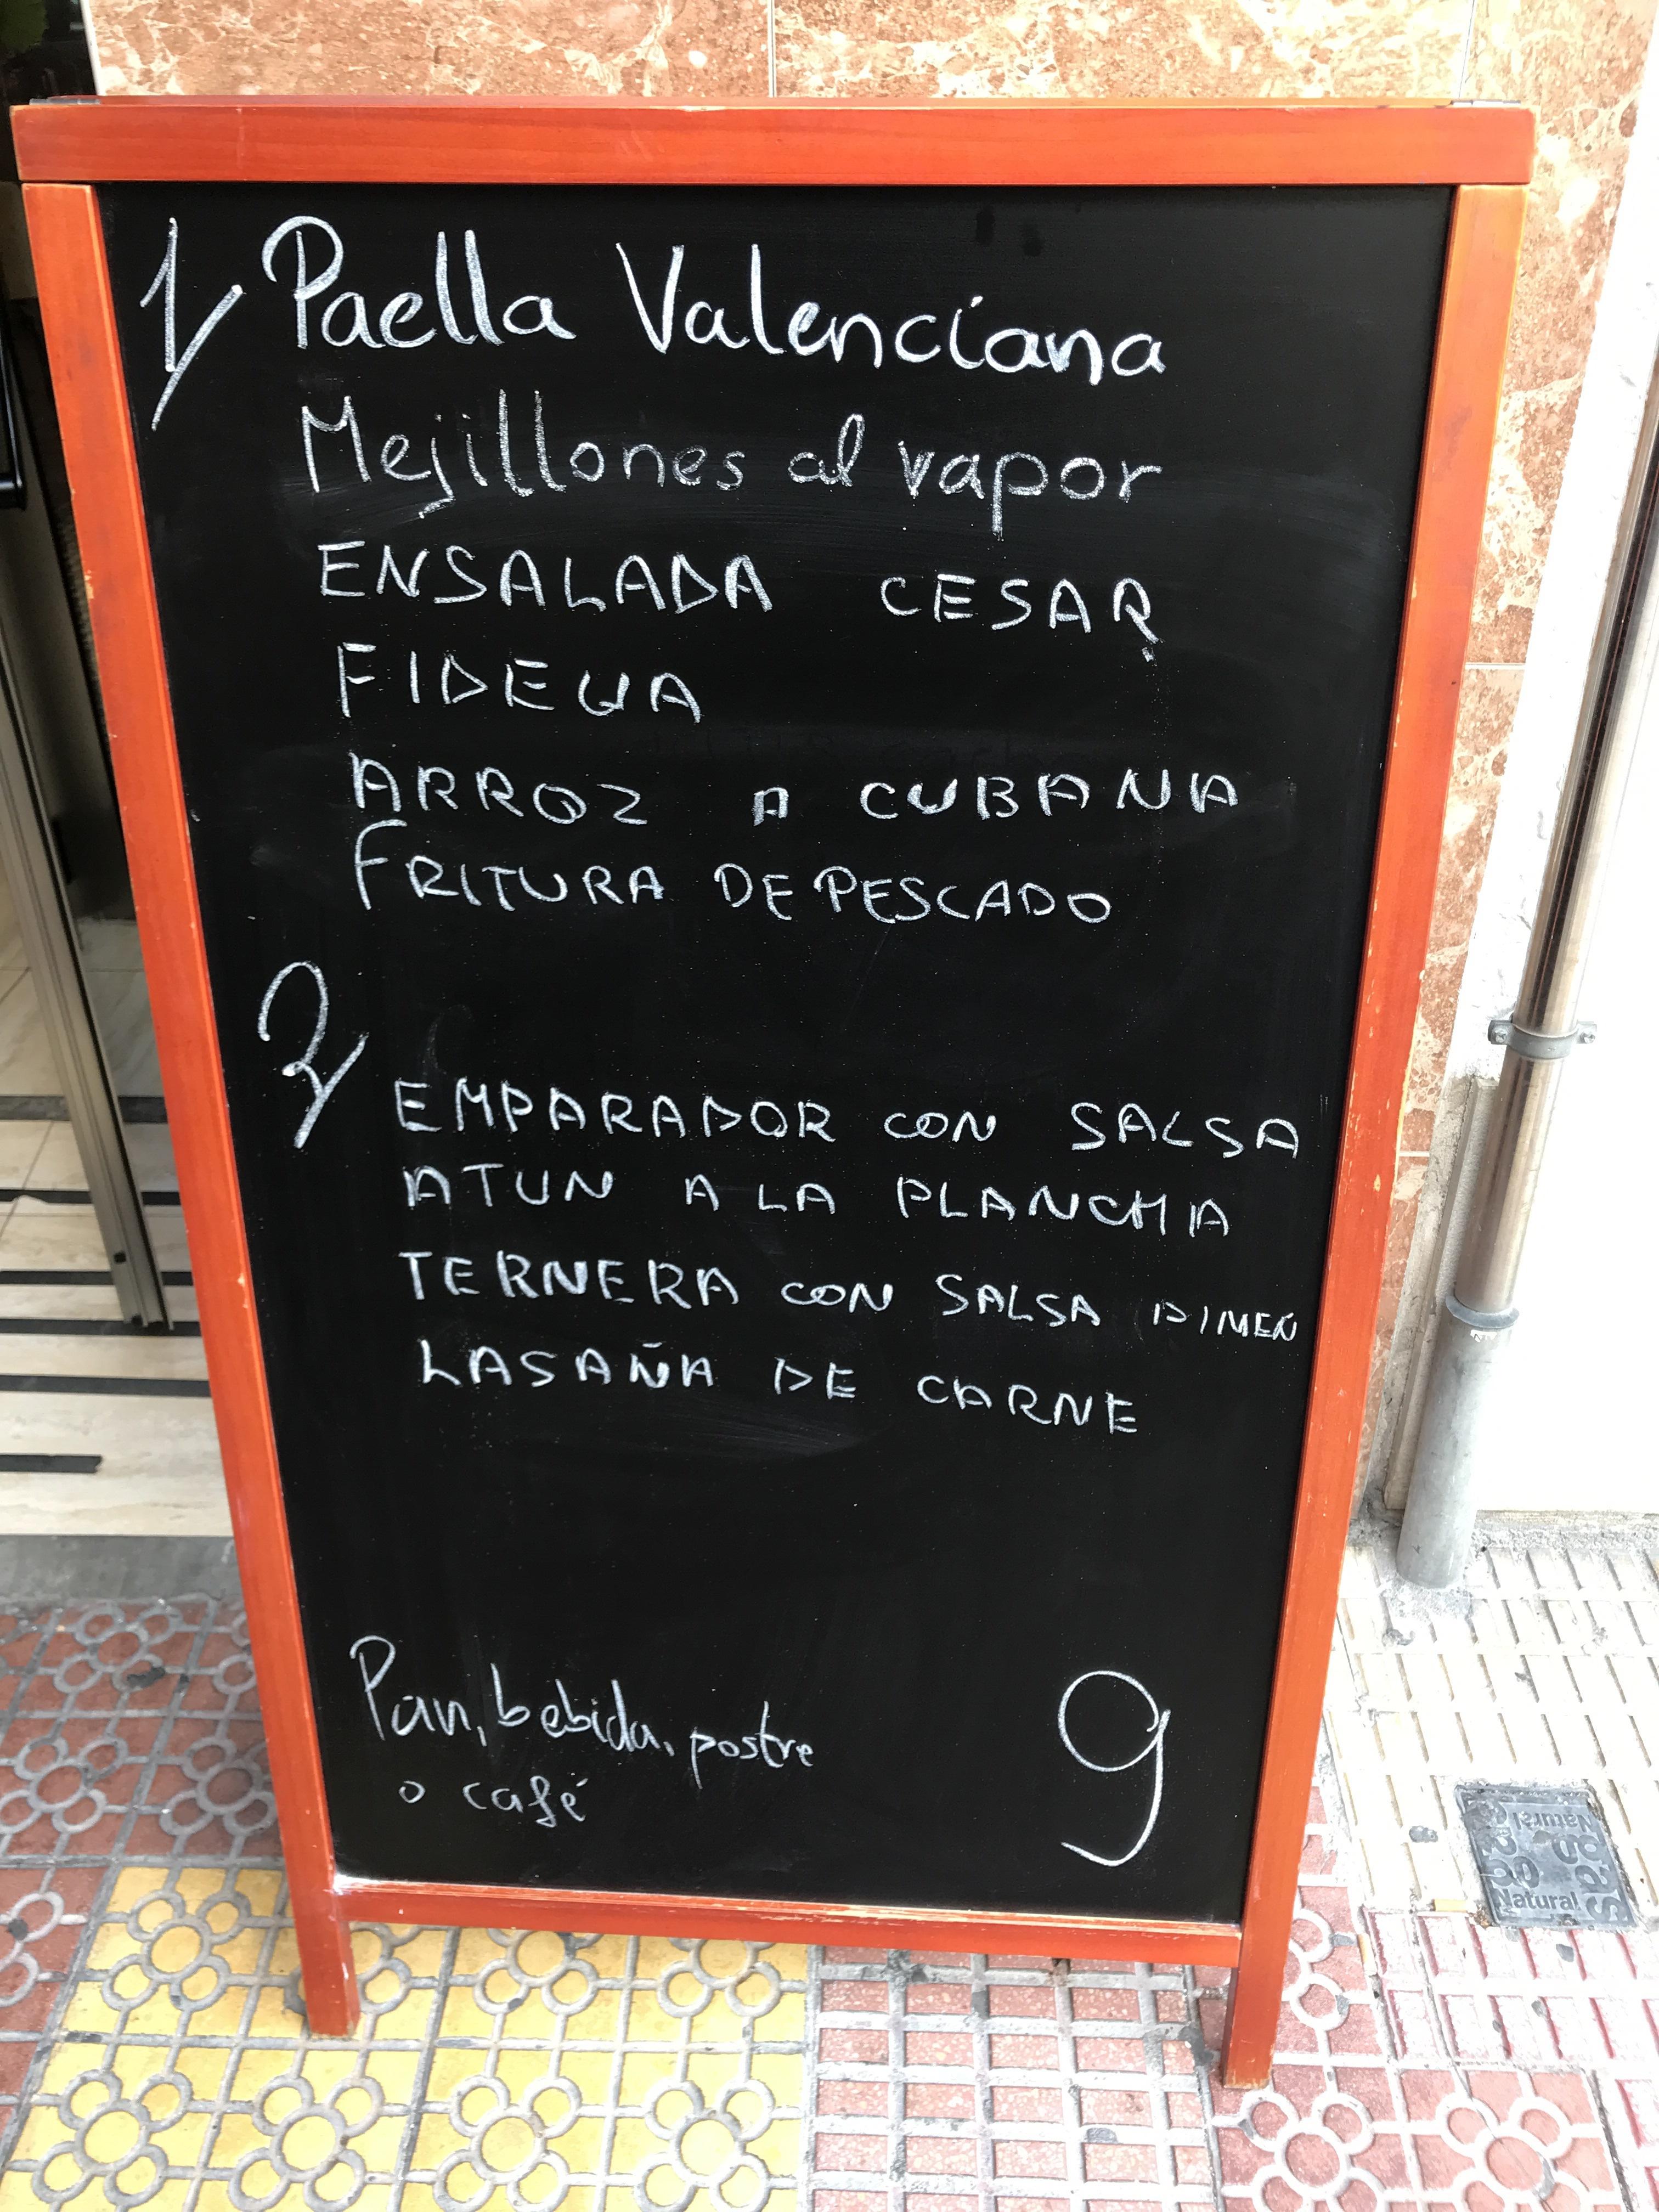 1/ Paella Valenciana
Mejillones al vapor
ENSALADA CESAR
FIDEUA
ARROZ A CUBANA
FRITURA DE PESCADO
2/
EMPARADOR CON SALSA
ATUN A LA PLANCHA
TERNERA CON SALSA PIMEN
LASAÑA DE CARNE
Pan, bebida, postre
o café
9
Natural
Natural